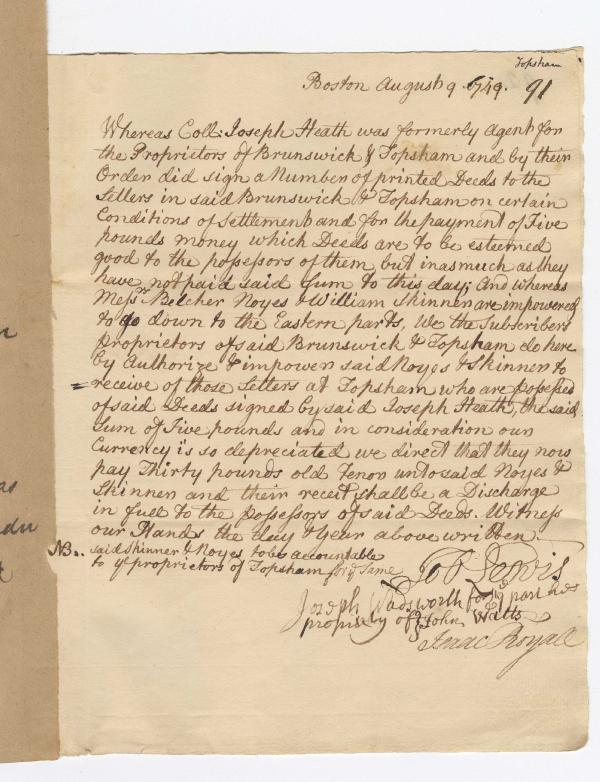 Topsham
Boston August 9. 1749. 91
Whereas Coll: Joseph Heath was formerly Agent for
the Proprietors of Brunswick & Topsham and by their
Order did sign a Number of printed Deeds to the
Setlers in said Brunswick & Topsham on certain
Conditions of settlement and for the payment of Five
pounds money which Deeds are to be esteemed
good to the possessors of them but inasmuch as they
have not paid said Sum to this day; And whereas
Messrs. Belcher Noyes & William Skinner are impowered
to go down to the Eastern parts, We the Subscribers
Proprietors of said Brunswick & Topsham do here
by Authorize & impower said Noyes & Skinner to
receive of those Setlers at Topsham who are possessed
of said Deeds signed by said Joseph Heath, the said
Sum of Five pounds and in consideration our
Currency is so depreciated we direct that they now
pay Thirty pounds old Tenor unto said Noyes &
Skinner and their receit shall be a Discharge
in full to the possessors of said Deeds. Witness
our Hands the day & Year above written.
NB. said Skinner & Noyes to be accountable
to ye proprietors of Topsham for ye Same
Job Lewis
Joseph Wadsworth for ye part he
propriety of John Watts
Isaac Royall